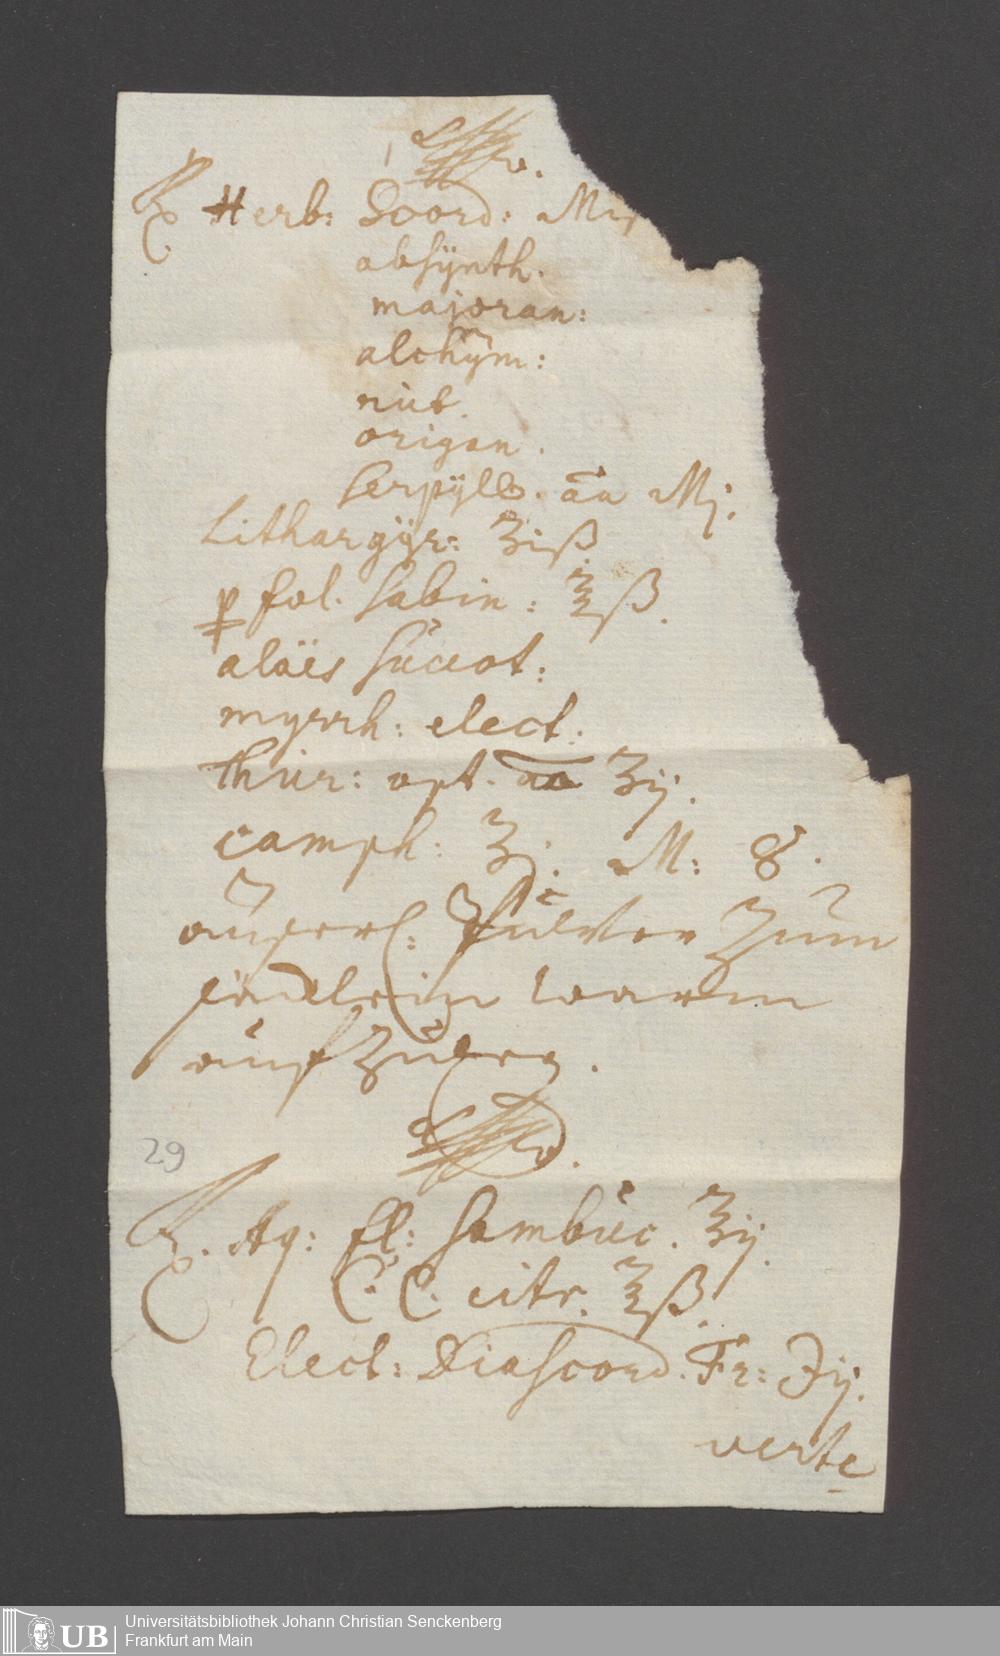 ℞ Herb: Scord: M
absÿnth.
majoran:
alchÿm:
rut.
origan.
serpÿll. aa Mj.
Lithargÿr: ℥iß
p fol. sabin: ℥ß.
aloës succot:
myrrh: elect.
thur: opt. aa ʒij.
camph: ʒj. M: 
Pulver Zum
warm
29
℞. Aq: fl: Sambuc. ℥ij.
C. C. citr. ℥ß.
Elect: Diascord. Fr: ʒij.
verte
UB
Universitätsbibliothek Johann Christian Senckenberg
Frankfurt am Main